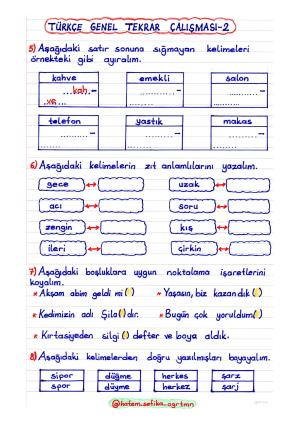 TÜRKÇE GENEL TEKRAR ÇALIŞMASI-2
5) Aşağıdaki satır sonuna sığmayan kelimeleri
örnekteki gibi ayıralım.
kahve emekli salon
...kah.-
.ve...
telefon yastık makas
6) Aşağıdaki kelimelerin zıt anlamlılarını yazalım.
gece uzak
acı soru
zengin kış
ileri çirkin
7) Aşağıdaki boşluklara uygun noktalama işaretlerini
koyalım.
* Akşam abim geldi mi ( ) * Yaşasın, biz kazandık ( )
* Kedimizin adı Şila( )dır. * Bugün çok yoruldum( )
* Kırtasiyeden silgi ( ) defter ve boya aldık.
8) Aşağıdaki kelimelerden doğru yazılmışları boyayalım.
sipor düğme herkes şarz
spor düyme herkez şarj
@hatem.sefika.ogrtmn